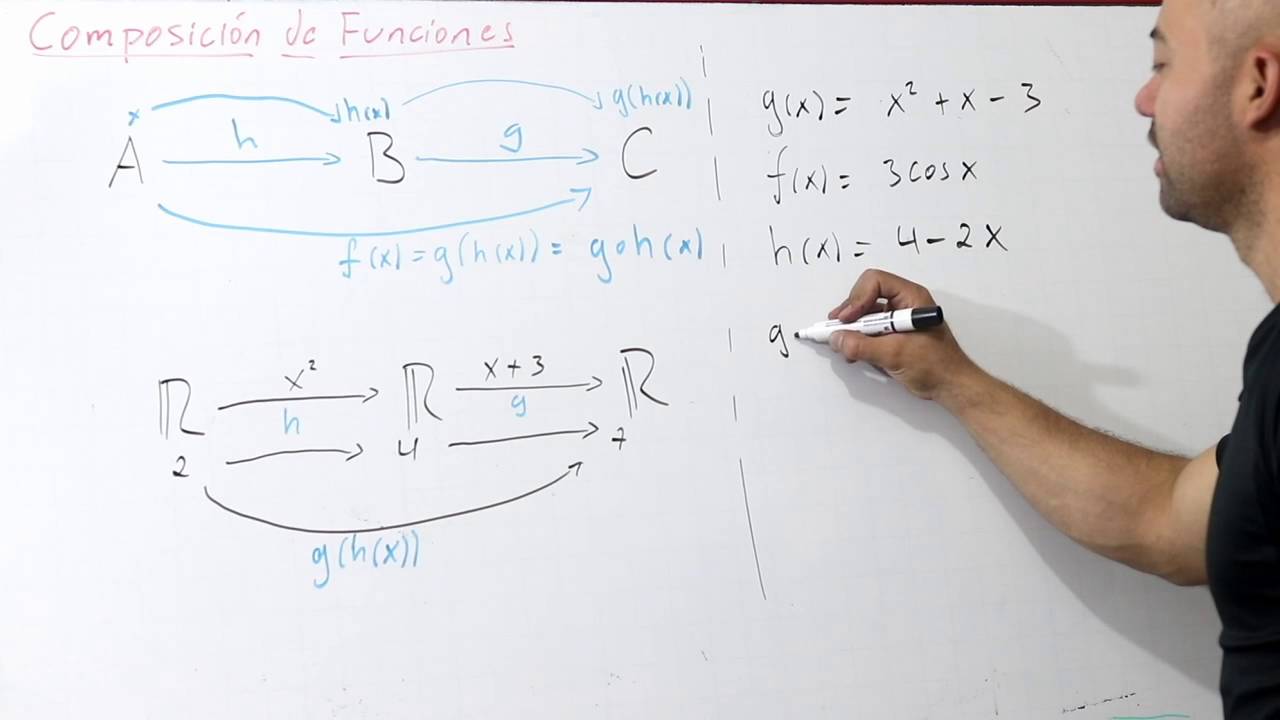 Composición de Funciones
x h(x) g(h(x))
A h B g C
f(x) = g(h(x)) = g∘h(x)
ℝ x² ℝ x + 3 ℝ
h g
2 4 7
g(h(x))
g(x) = x² + x - 3
f(x) = 3cosx
h(x) = 4 - 2x
g